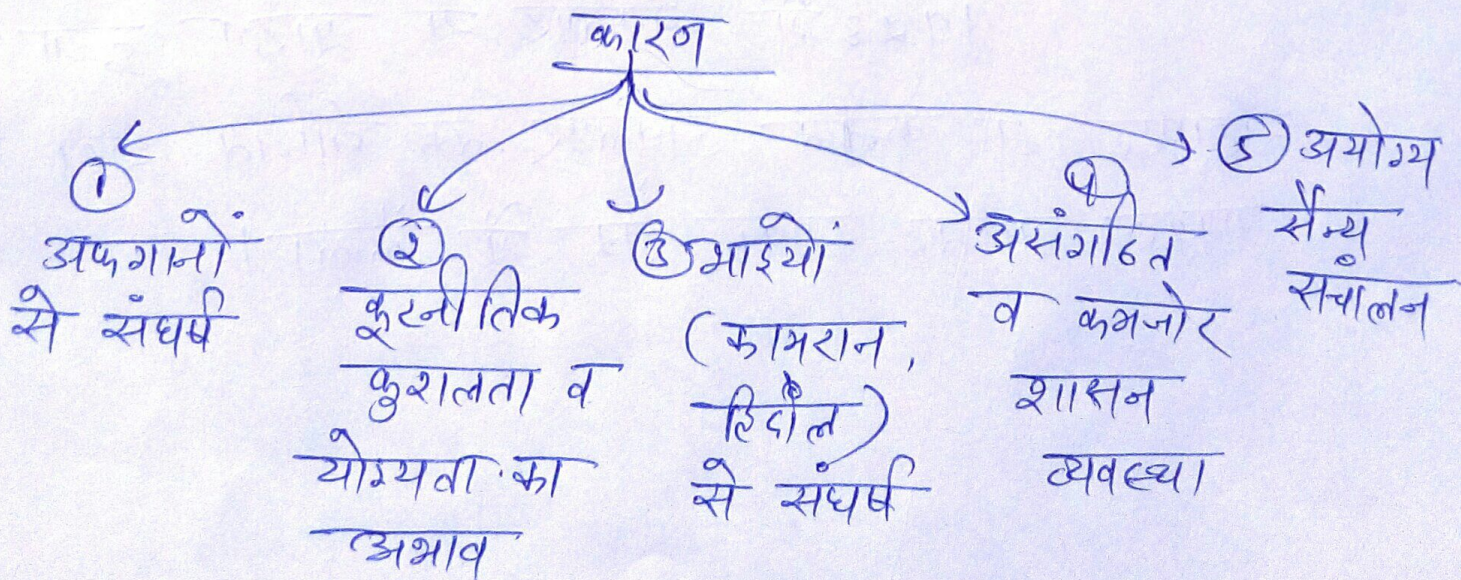 कारन
①
अफगानों
से संघर्ष
②
कूटनीतिक
कुशलता व
योग्यता का
अभाव
③ भाईयों
(कामरान,
हिंदाल)
से संघर्ष
④
असंगठित
व कमजोर
शासन
व्यवस्था
⑤ अयोग्य
सैन्य
संचालन